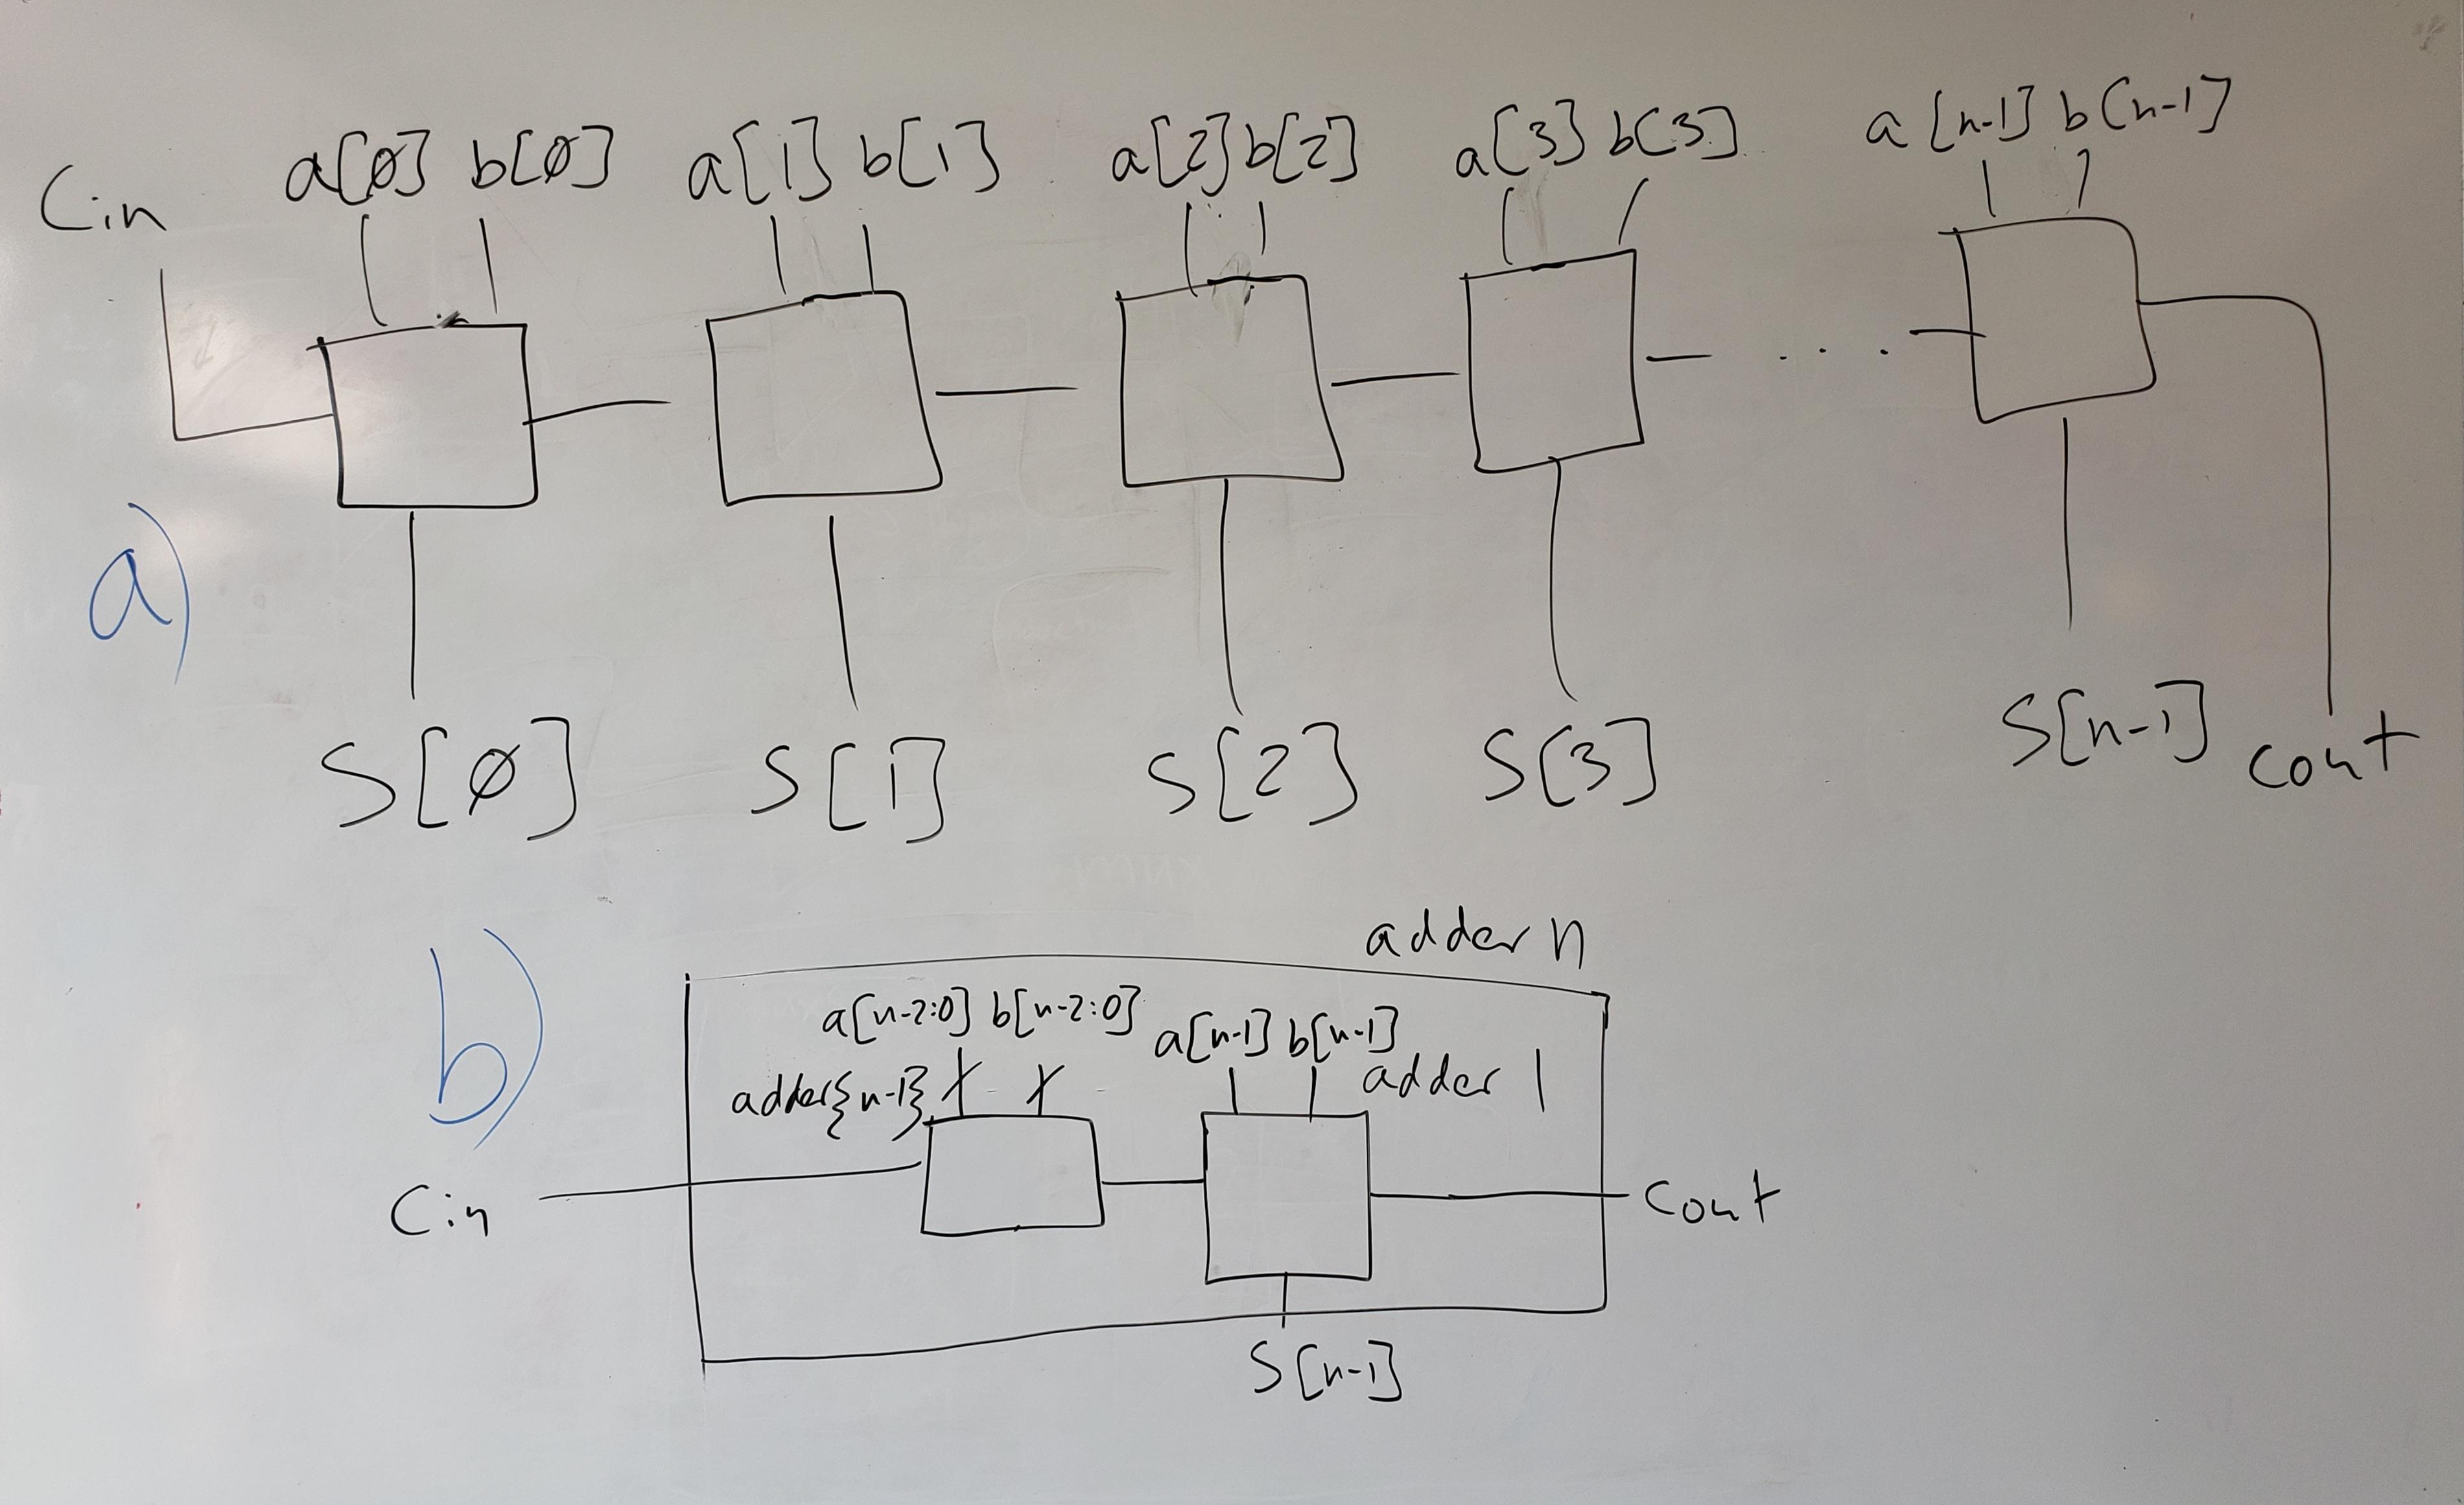 Cin a[0] b[0] a[1] b[1] a[2] b[2] a[3] b[3] a[n-1] b[n-1]
a)
S[0] S[1] S[2] S[3] S[n-1] Cout
b)
adder n
a[n-2:0] b[n-2:0] a[n-1] b[n-1]
adder{n-1} adder 1
Cin Cout
S[n-1]